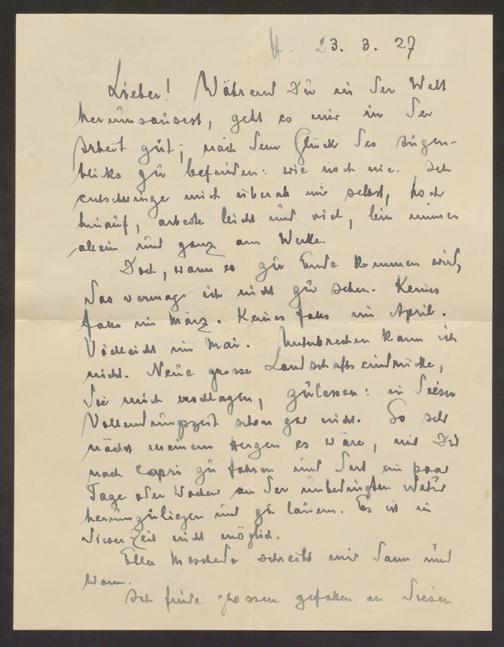 H. 23. 3. 27
Lieber! Während Du in der Welt
herumsausest, geht es mir in der
Arbeit gut; nach dem Glück des Augen-
blicks zu befinden: wie noch nie. Ich
entschwinge mich überab mir selbst, hoch
hinauf, arbeite leicht und viel, bin immer
allein und ganz am Werke.
Doch, wann es zu Ende kommen wird,
das vermag ich nicht zu sehen. Keines
falls im März. Keines falls im April.
Vielleicht im Mai. Unterbrechen kann ich
nicht. Neue grosse Landschaftseindrücke,
die mich erschlagen, zulassen: in dieser
Vollendungszeit schon gar nicht. So sehr
nächst meinem Herzen es wäre, mit Dir
nach Capri zu fahren und dort ein paar
Tage oder Wochen an der unbedingten Natur
herumzuliegen und zu lauern. Es ist in
dieser Zeit nicht möglich.
Ella schreibt mir dann und
wann.
Ich finde grossen gefallen an diesen